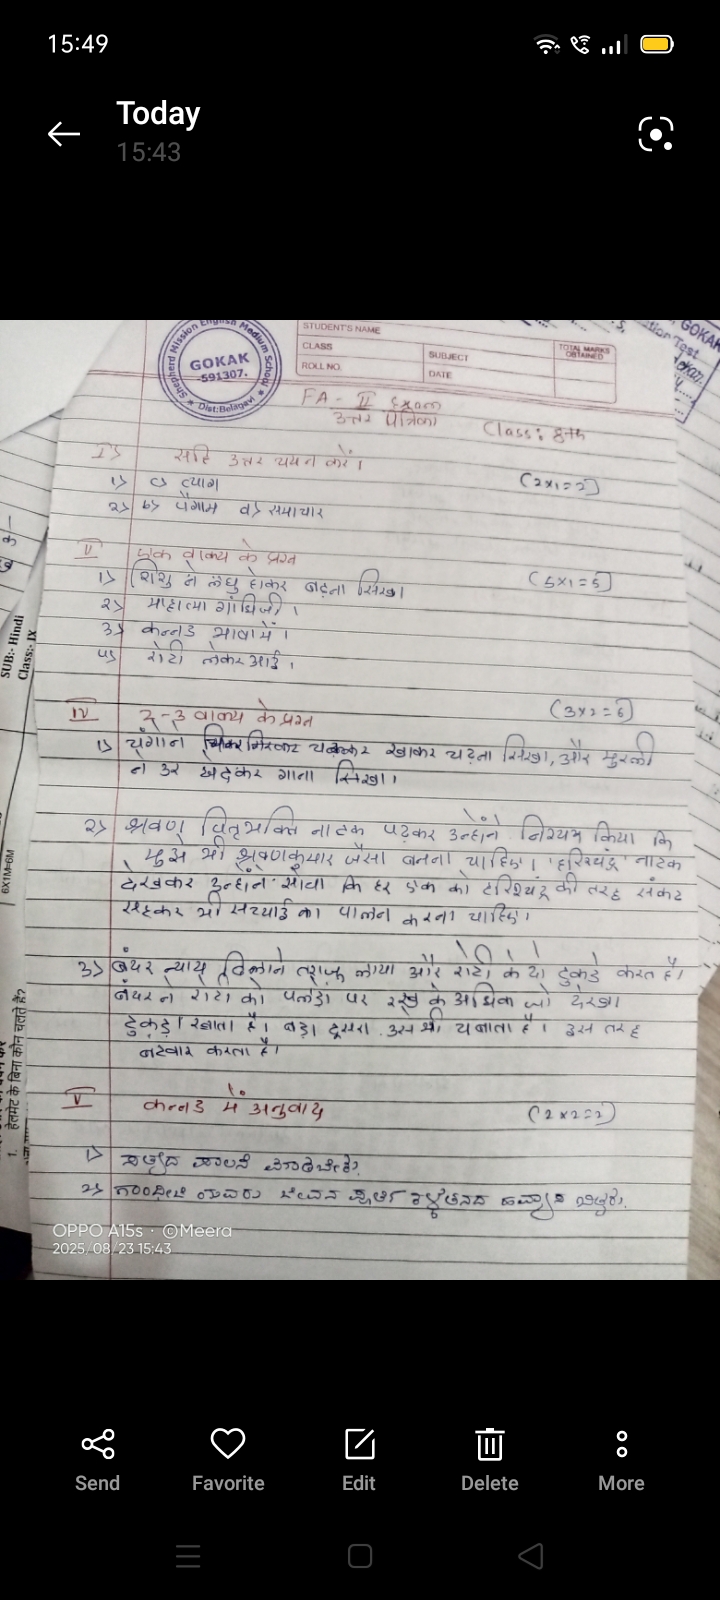 15:49
Today
15:43
Shepherd Mission English Medium School
GOKAK
-591307.
Dist:Belagavi
STUDENT'S NAME
CLASS
SUBJECT
TOTAL MARKS OBTAINED
ROLL NO.
DATE
GOKAK
Test
FA - II Exam
उत्तर पत्रिका
Class: 8th
I> सहि उत्तर चयन करें।
1> c> त्याग (2x1=2)
२> b> पैगाम व> समाचार
II एक वाक्य के प्रश्न
1> शिशु ने लघु होकर बढ़ना सिखा। (5x1=5)
२> माहात्मा गांधिजी।
3> कन्नड भाषा में।
४> रोटी लेकर आई।
IV २-३ वाक्य के प्रश्न (3x2=6)
1> खाकर चढ़ना सिखा, और मुरली
ने उर छेदकर गाना सिखा।
२> श्रवण पितृभक्ति नाटक पढ़कर उन्होंने निश्चय किया कि
मुझे भी श्रवणकुमार जैसा बनना चाहिए। 'हरिश्चंद्र' नाटक
देखकर उन्होंने सोचा कि हर एक को हरिश्चंद्र की तरह संकट
सहकर भी सच्चाई का पालन करना चाहिए।
3> बंदर न्याय तराजू लाया और रोटी के दो टुकडे करत है।
बंदर ने रोटी को पलड़ो पर रखे के अधिक जो देखा
टुकड़ा खाता है। बड़ा दूसरा उसे भी चबाता है। इस तरह
बटवार करता है।
V कन्नड में अनुवाद (2x2=2)
1> ಸತ್ಯದ ಪಾಲನೆ ಮಾಡಬೇಕು.
2>
SUB:- Hindi
Class:- IX
6X1M=6M
1. हेलमेट के बिना कौन चलते है?
OPPO A15s · @Meera
2025/08/23 15:43
Send
Favorite
Edit
Delete
More